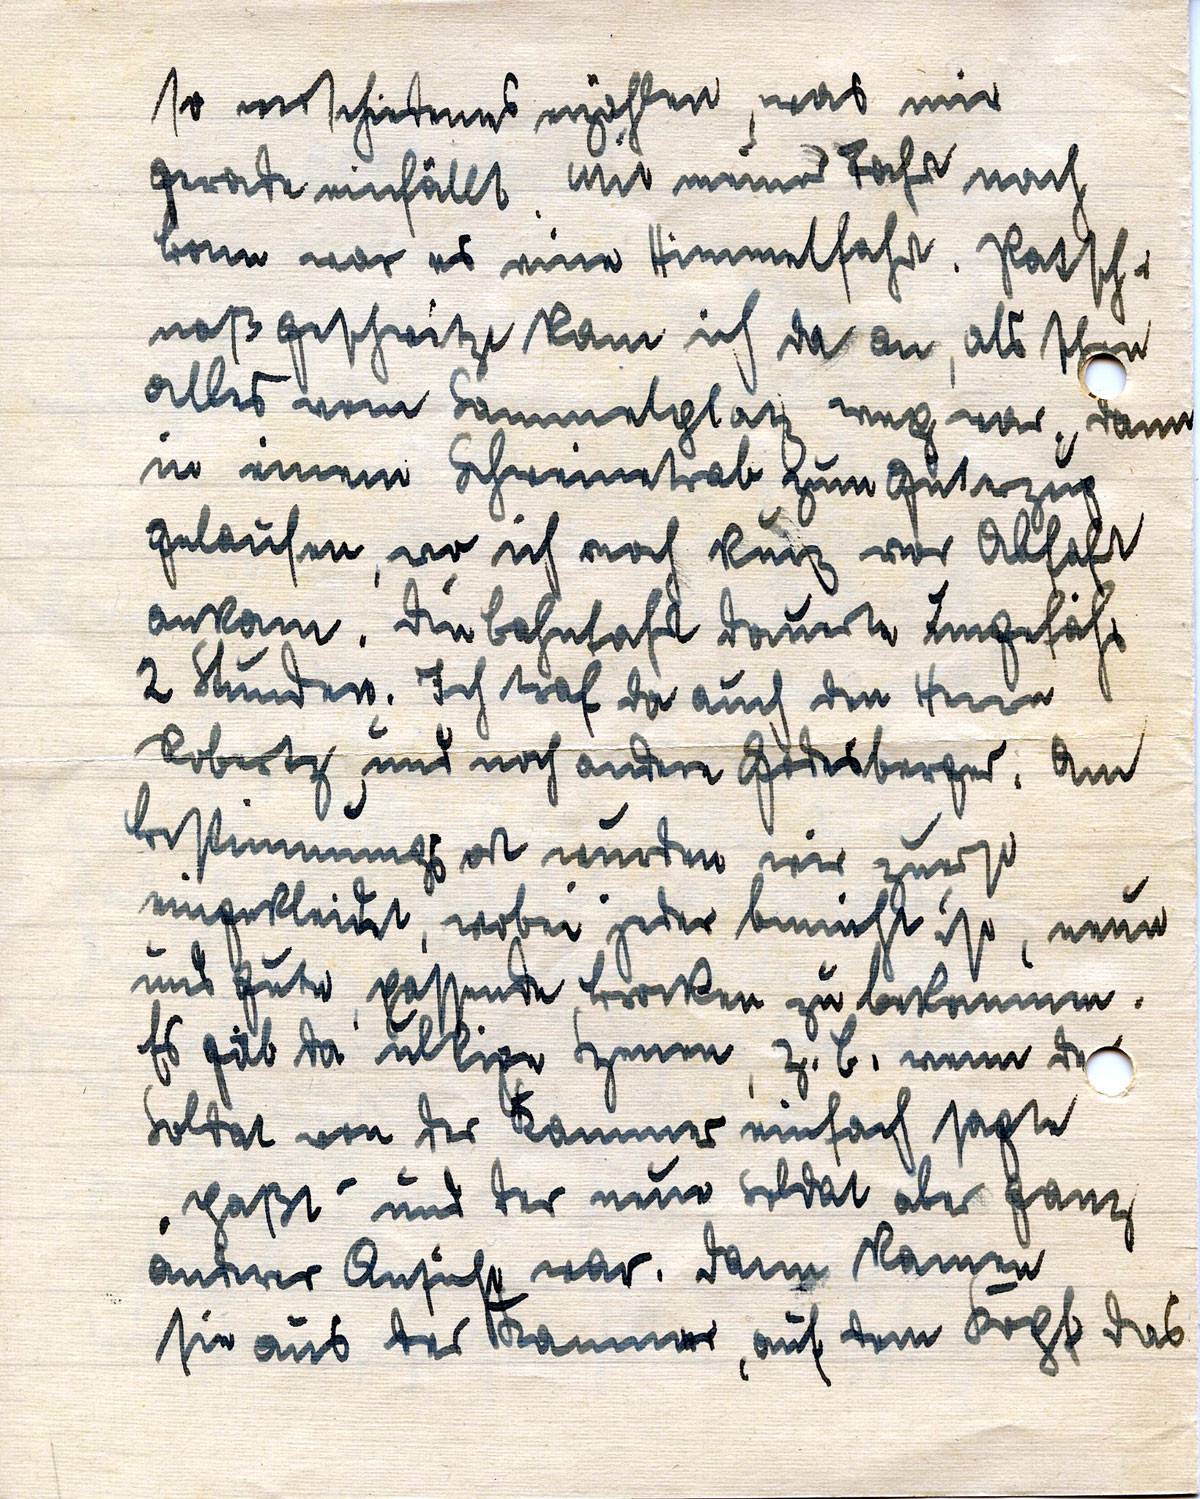 so verschiedenes erzählen, was mir
gerade einfällt. Mit meiner Fahrt nach
Bonn war es eine Himmelfahrt. Patsch-
naß geschwitzt kam ich da an, als schon
alles vom Sammelplatz weg war, dann
in einem Schweinetrab zum Güterzug
gelaufen, wo ich noch kurz vor Abfahrt
ankam. Die Bahnfahrt dauerte Ungefähr
2 Stunden. Ich traf da auch den Herrn
Kobertz und noch andere Godesberger. Am
Bestimmungsort wurden wir zuerst
eingekleidet, wobei jeder bemüht ist, neue
und gute, passende Brocken zu bekommen.
Es gab da ulkige Szenen, z. B. wenn der
Soldat von der Kammer einfach sagte
„paßt“ und der neue Soldat aber ganz
anderer Ansicht war. Dann kamen
sie aus der Kammer, auf dem Kopf das